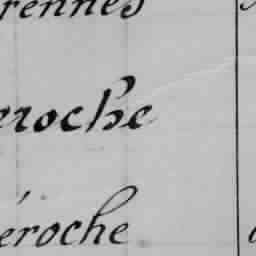 rennes
eroche
éroche